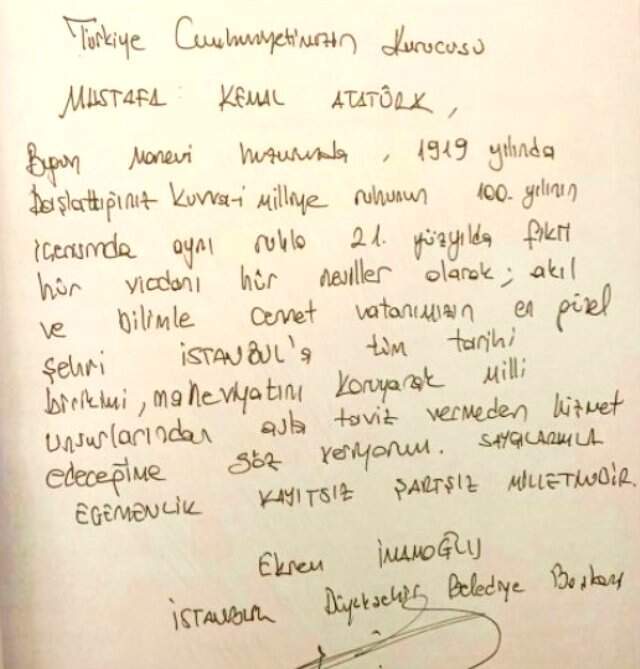 Türkiye Cumhuriyetimizin Kurucusu
MUSTAFA KEMAL ATATÜRK,
Bugün Manevi huzurunuzda, 1919 yılında
Başlattığınız Kuvva-i Milliye ruhunun 100. yılının
içerisinde aynı ruhla 21. yüzyılda fikri
hür vicdanı hür nesiller olarak; akıl
ve bilimle cennet vatanımızın en güzel
şehri İSTANBUL'a tüm tarihi
birikimi, maneviyatını koruyarak Milli
unsurlarından asla taviz vermeden hizmet
edeceğime söz veriyorum. SAYGILARIMLA
EGEMENLİK KAYITSIZ ŞARTSIZ MİLLETİNDİR.
Ekrem İMAMOĞLU
İSTANBUL Büyükşehir Belediye Başkanı